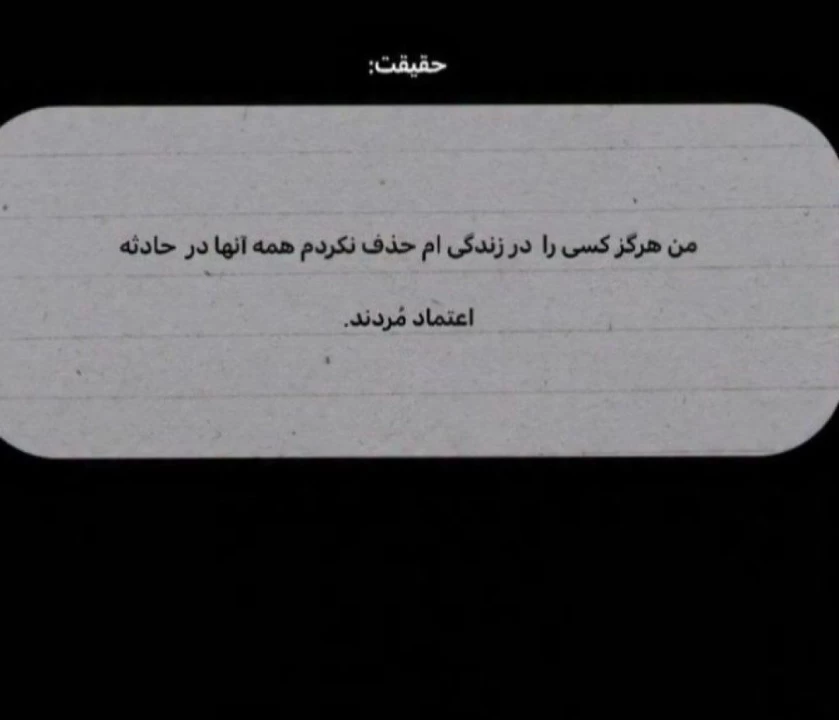 حقیقت:
من هرگز کسی را در زندگی ام حذف نکردم همه آنها در حادثه
اعتماد مُردند.